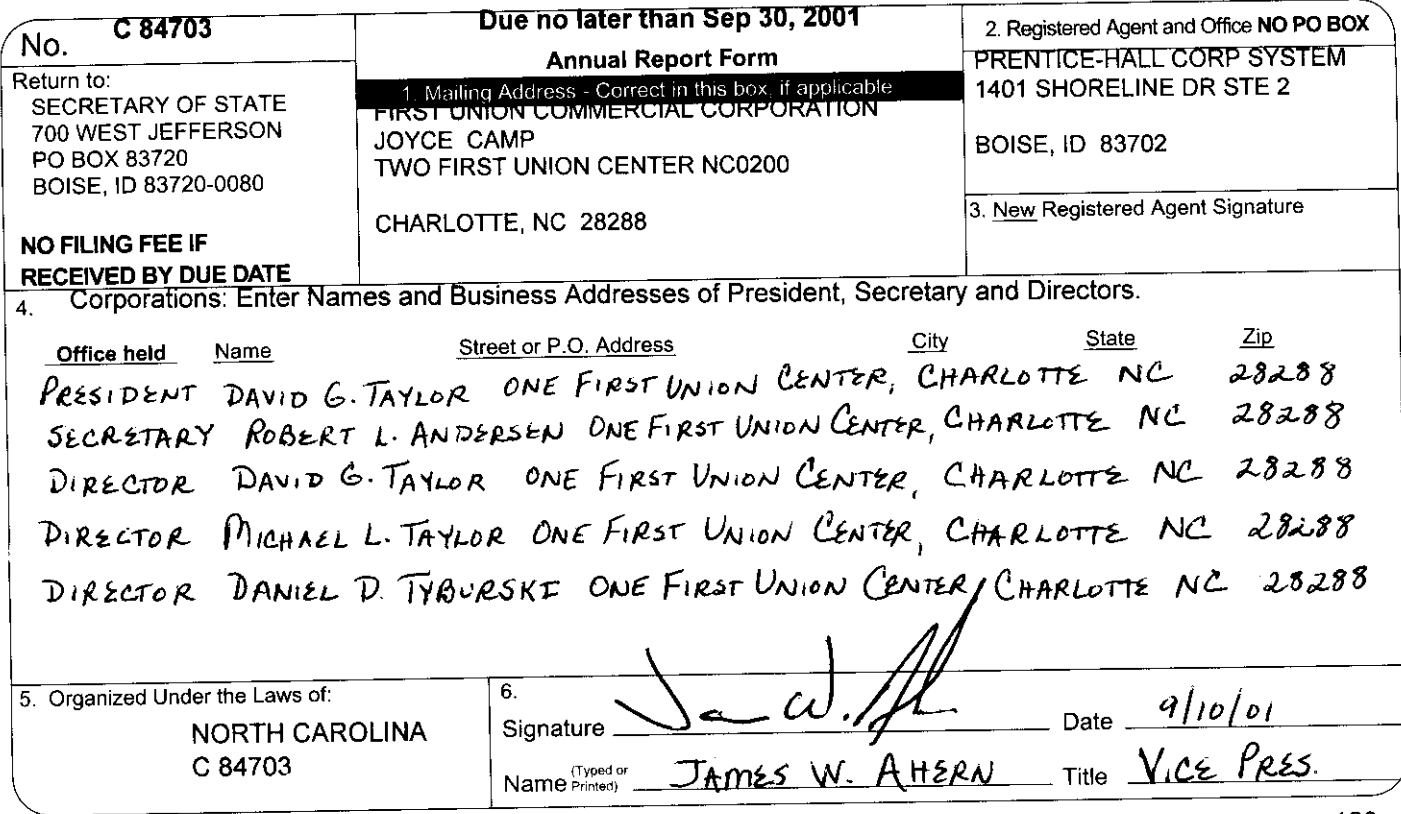 No. C 84703
Return to:
SECRETARY OF STATE
700 WEST JEFFERSON
PO BOX 83720
BOISE, ID 83720-0080
NO FILING FEE IF
RECEIVED BY DUE DATE
Due no later than Sep 30, 2001
Annual Report Form
1. Mailing Address - Correct in this box, if applicable
FIRST UNION COMMERCIAL CORPORATION
JOYCE CAMP
TWO FIRST UNION CENTER NC0200
CHARLOTTE, NC 28288
2. Registered Agent and Office NO PO BOX
PRENTICE-HALL CORP SYSTEM
1401 SHORELINE DR STE 2
BOISE, ID 83702
3. New Registered Agent Signature
4. Corporations: Enter Names and Business Addresses of President, Secretary and Directors.
Office held Name Street or P.O. Address City State Zip
PRESIDENT DAVID G. TAYLOR ONE FIRST UNION CENTER, CHARLOTTE NC 28288
SECRETARY ROBERT L. ANDERSEN ONE FIRST UNION CENTER, CHARLOTTE NC 28288
DIRECTOR DAVID G. TAYLOR ONE FIRST UNION CENTER, CHARLOTTE NC 28288
DIRECTOR MICHAEL L. TAYLOR ONE FIRST UNION CENTER, CHARLOTTE NC 28288
DIRECTOR DANIEL D. TYBURSKI ONE FIRST UNION CENTER, CHARLOTTE NC 28288
5. Organized Under the Laws of:
NORTH CAROLINA
C 84703
6.
Signature Date 9/10/01
Name (Typed or Printed) JAMES W. AHERN Title VICE PRES.